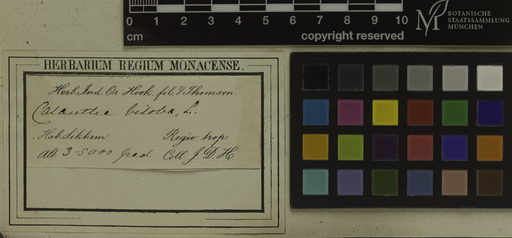 0 1 2 3 4 5 6 7 8 9 10
cm
copyright reserved
BOTANISCHE
STAATSSAMMLUNG
MÜNCHEN
HERBARIUM REGIUM MONACENSE.
Herb. Ind. Or. Hook. fil. & Thomson.
Calanthe biloba, L.
Hab. Sikkim Regio trop.
Alt. 3-5000 ped Coll. J. D. H.